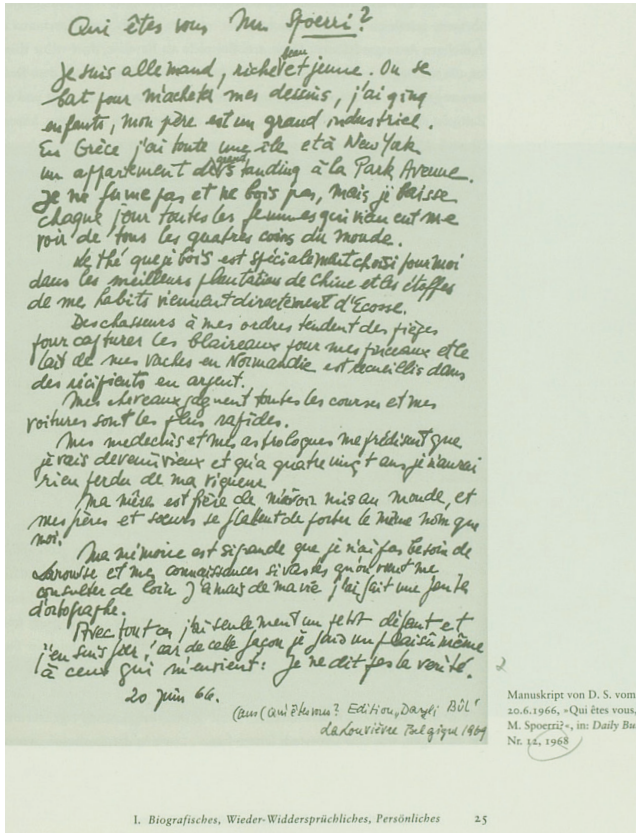 Qui êtes vous Mr Spoerri?
beau
Je suis allemand, riche et jeune. On se
bat pour m'acheter mes dessins, j'ai çinq
enfants, mon père est un grand industriel.
En Grèce j'ai toute une île et à New York
un appartement de grand standing à la Park Avenue.
Je ne fume pas et ne bois pas, mais je baisse
chaque jour toutes les femmes qui viennent me
voir de tous les quatres coins du monde.
Le thé que je bois est spécialement choisi pour moi
dans les meilleurs plantation de Chine et les étoffes
de mes habits viennent directement d'Ecosse.
Des chasseurs à mes ordres tendent des pièges
pour capturer les blaireaux pour mes pinceaux et le
lait de mes vaches en Normandie est recueillis dans
des récipients en argent.
Mes chevaux gagnent toutes les courses et mes
voitures sont les plus rapides.
Mes medecins et mes astrologues me prédisent que
je vais devenir vieux et qu'a quatre vingt ans je n'aurai
rien perdu de ma vigueur.
Ma mère est fière de m'avoir mis au monde, et
mes frères et sœurs se flattent de porter le même nom que
moi.
Ma mémoire est si grande que je n'ai pas besoin de
Larousse et mes connaissances si vastes qu'on vient me
consulter de loin. Jamais de ma vie j'ai fait une faute
d'ortographe.
Avec tout ça j'ai seulement un petit défaut et
j'en suis fier, car de cette façon je fais un plaisir même
à ceux qui m'envient: Je ne dit pas la verité.
20 juin 66.
(aus (qui êtes vous? Edition „Daryli BÛL"
La Louvière Belgique 1969
2
Manuskript von D. S. vom
20.6.1966, »Qui êtes vous,
M. Spoerri?«, in: Daily Bu
Nr. 12, 1968
I. Biografisches, Wieder-Widdersprüchliches, Persönliches 25